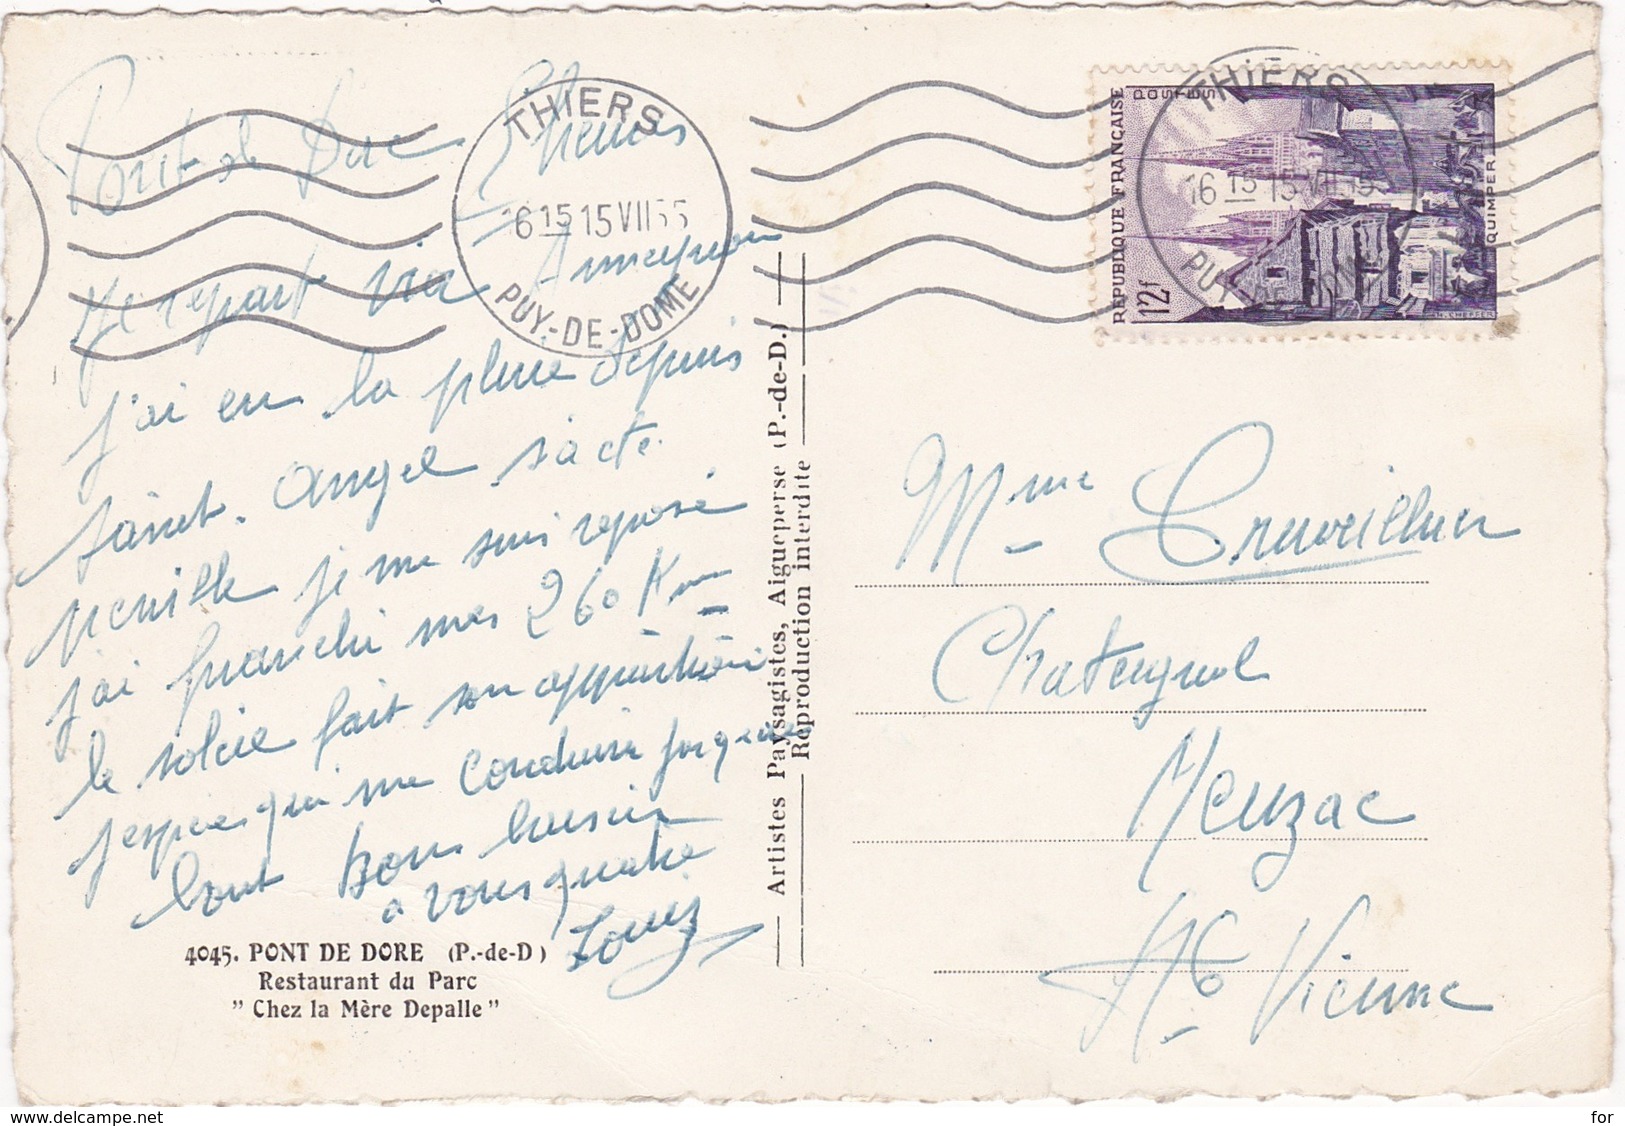 Pont de Dore
THIERS
16 15 15 VII 55
PUY-DE-DOME
Je repart via
j'ai eu la pluie depuis
Saint-Angel
je me suis reposé
j'ai franchi mes 260 Km
le soleil fait son apparition
j'espère qui me conduira jusque
bons baisers
a vous quatre
4045. PONT DE DORE (P.-de-D)
Restaurant du Parc
" Chez la Mère Depalle "
Artistes Paysagistes, Aigueperse (P.-de-D.)
Reproduction interdite
THIERS
16 15 15 VII 55
PUY-DE-DOME
RÉPUBLIQUE FRANÇAISE
POSTES
12f
QUIMPER
H. CHEFFER
Mme
Meuzac
Hte Vienne
www.delcampe.net
for